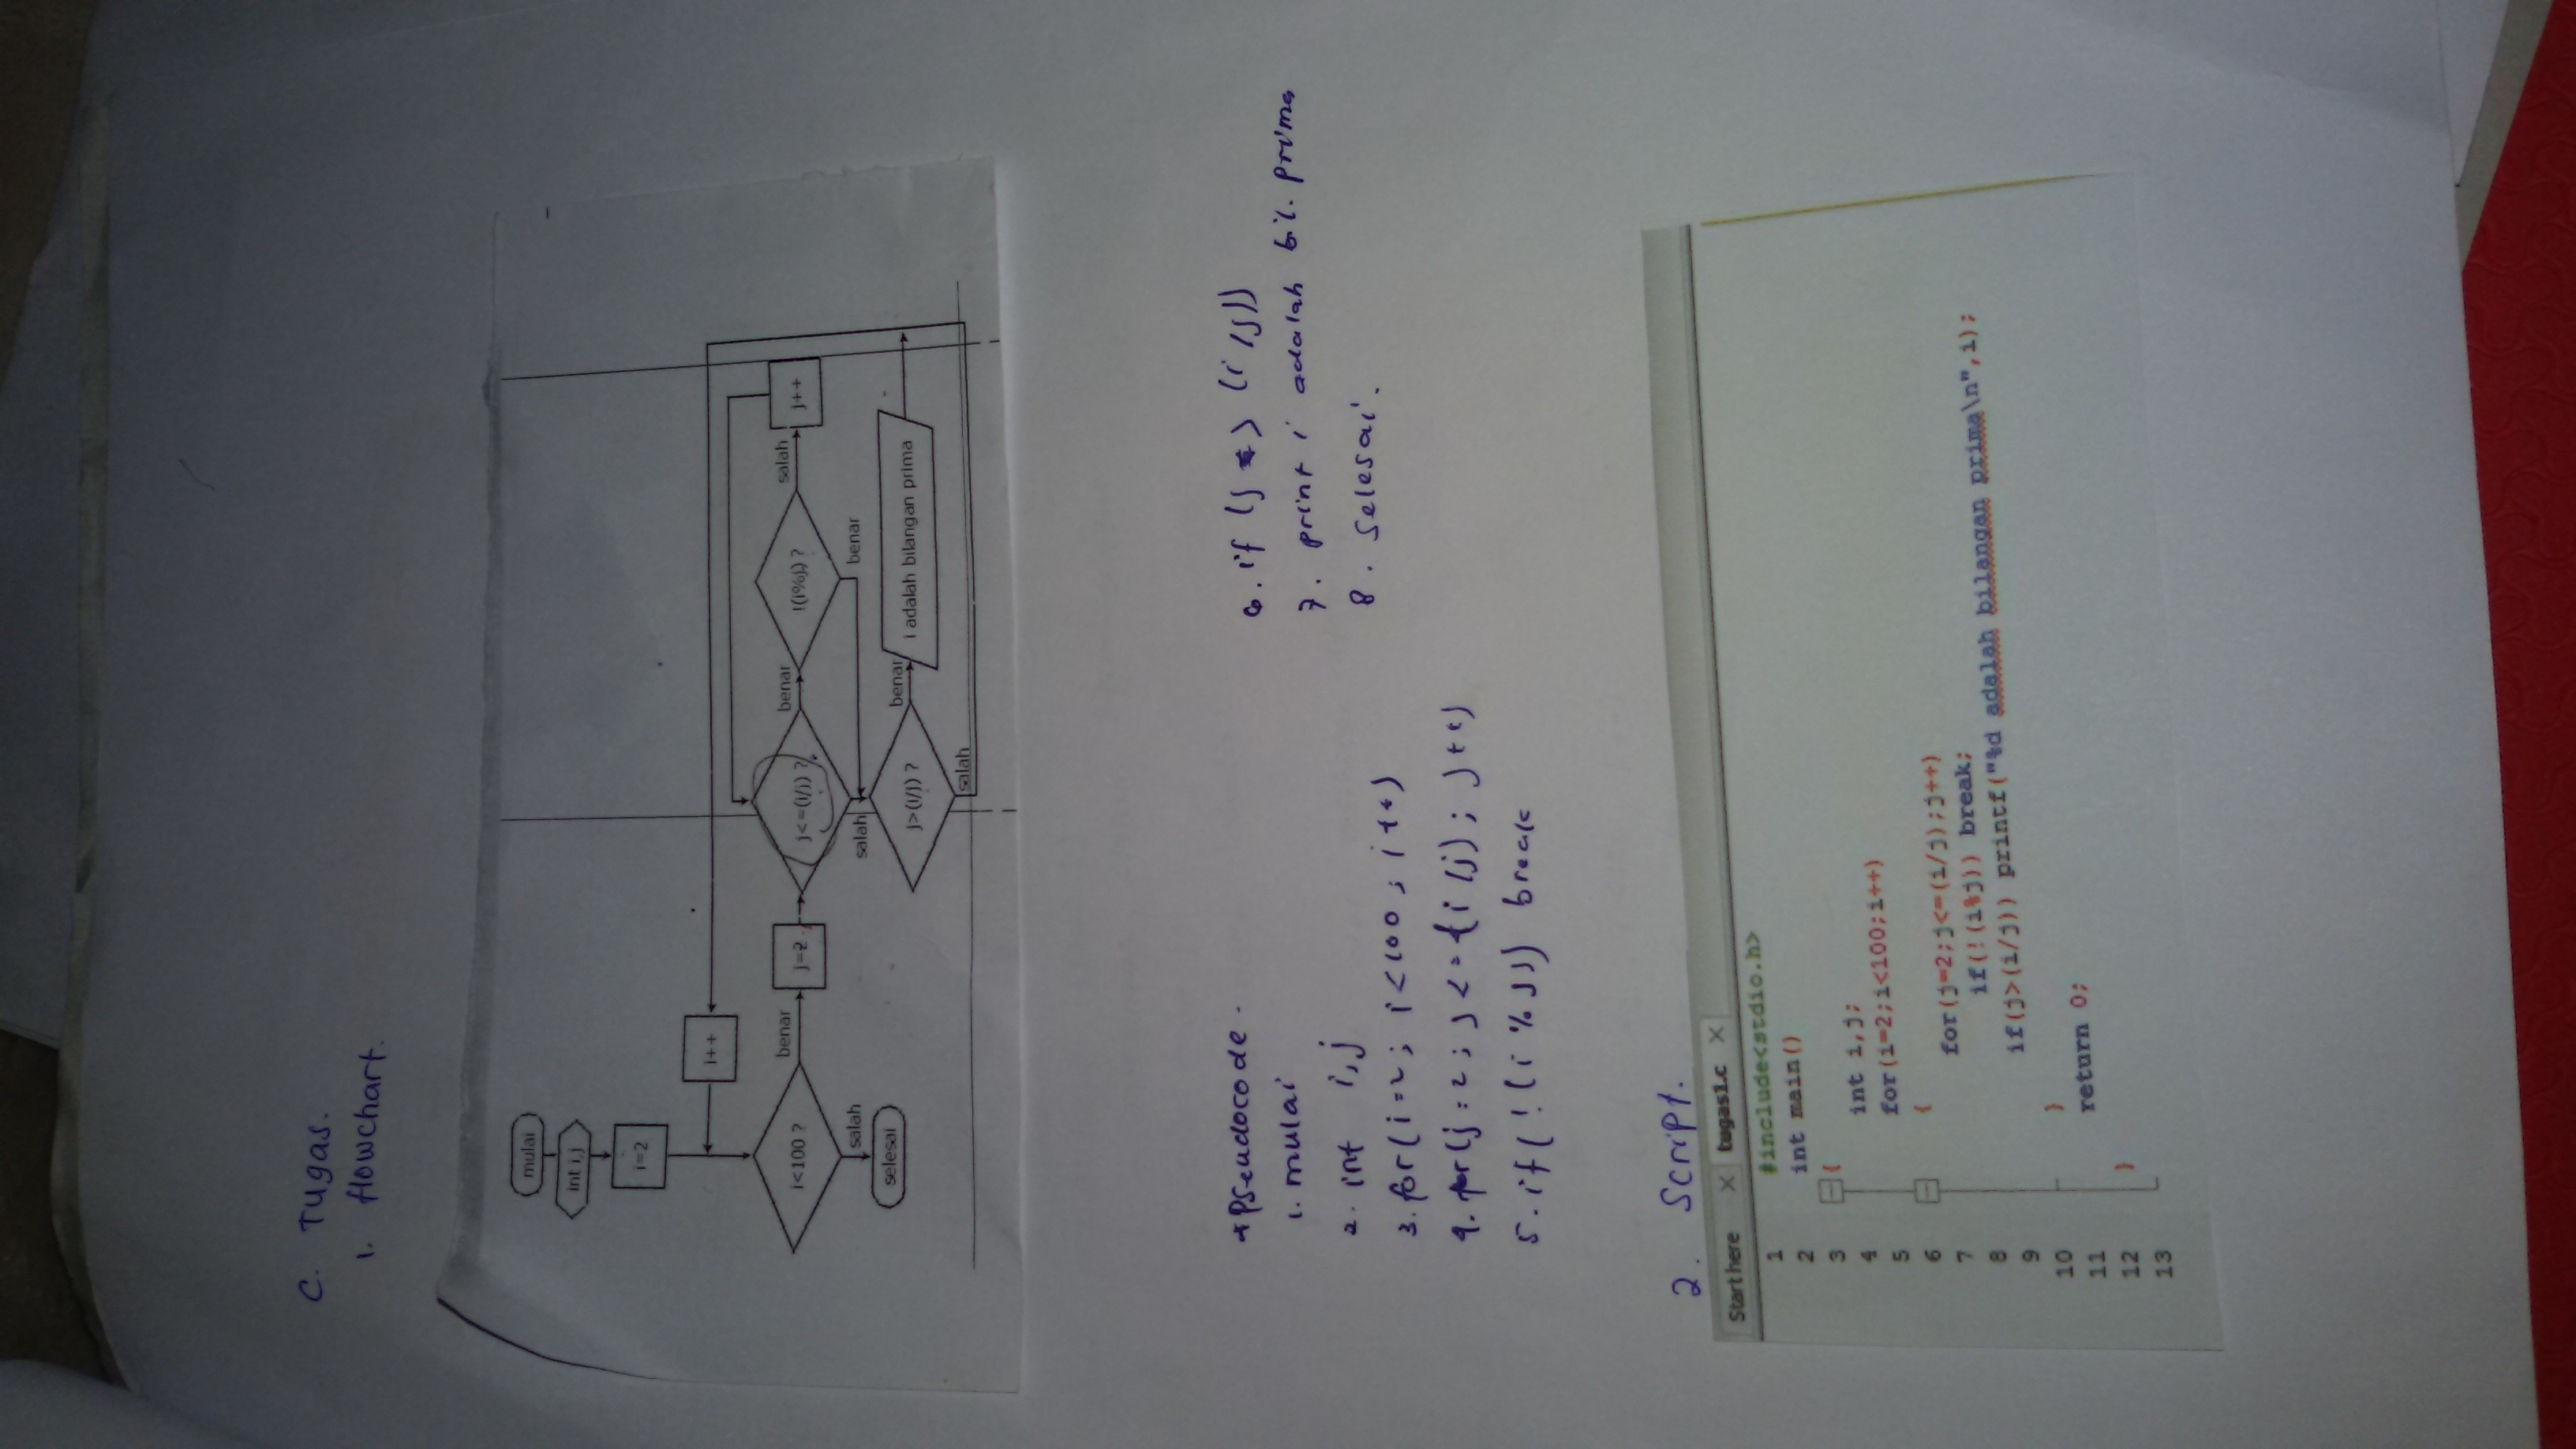 C. Tugas.
1. flowchart.
mulai
int i,j
i=2
i++
i<100 ?
benar
j=2
j<=(i/j) ?
benar
!(i%j) ?
salah
j++
salah
salah
benar
selesai
j>(i/j) ?
benar
i adalah bilangan prima
salah
*Pseudocode.
1. mulai
2. int i,j
3. for(i=2; i<100; i++)
4. for(j=2; j<=(i/j); j++)
5. if(!(i%j)) break
6. if (j > (i/j))
7. print i adalah bil. prima
8. Selesai.
2. Script.
Start here tugas1.c
1 #include<stdio.h>
2 int main()
3 {
4 int i,j;
5 for(i=2;i<100;i++)
6 {
7 for(j=2;j<=(i/j);j++)
8 if(!(i%j)) break;
9 if(j>(i/j)) printf("%d adalah bilangan prima\n",i);
10 }
11 return 0;
12 }
13